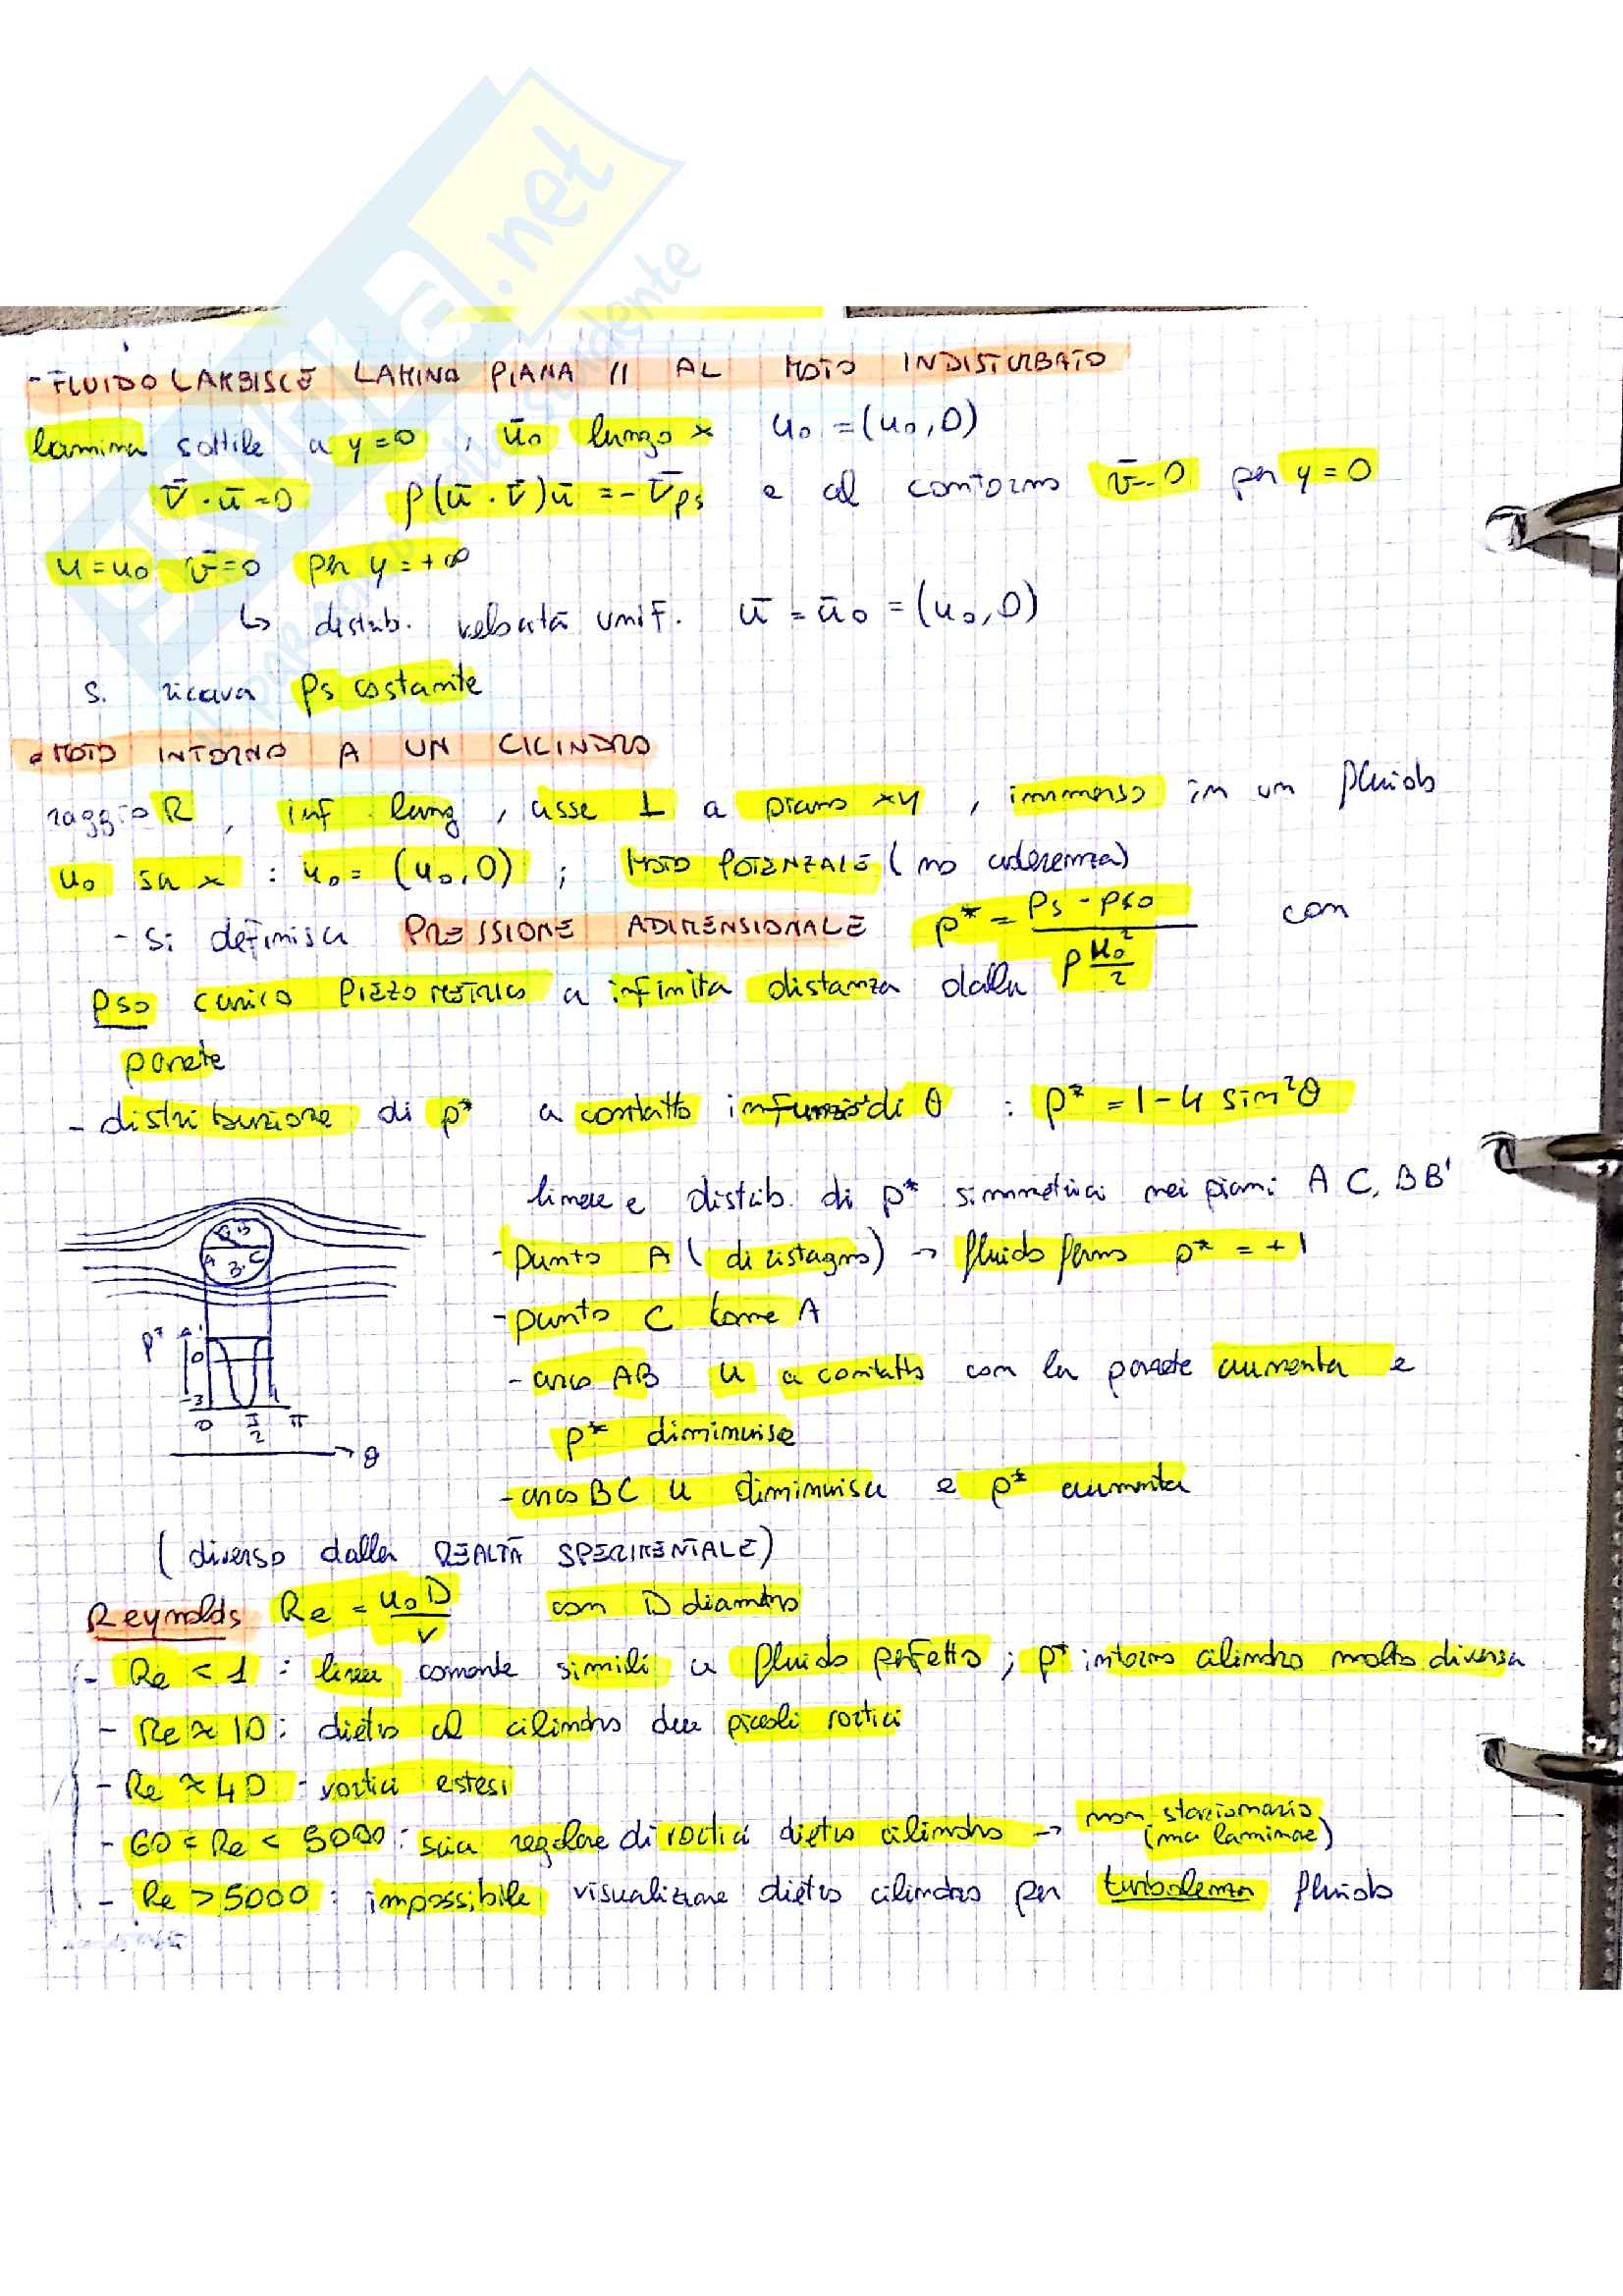 SKUOLA.net
- FLUIDO LAMBISCE LAMINA PIANA // AL MOTO INDISTURBATO
lamina sottile a y=0 , ū₀ lungo x u₀ = (u₀,0)
∇̄ · ū = 0 ρ(ū · ∇̄)ū = -∇̄ps e al contorno v̄=0 per y=0
u=u₀ v̄=0 per y=+∞
↳ distrib. velocità unif. ū = ū₀ = (u₀,0)
si ricava ps costante
• MOTO INTORNO A UN CILINDRO
raggio R , inf lung , asse ⊥ a piano xy , immerso in un fluido
u₀ su x : u₀ = (u₀,0) ; MOTO POTENZIALE (no aderenza)
- Si definisce PRESSIONE ADIMENSIONALE p* = (ps - pso) / (ρ u₀²/2) con
pso carico PIEZOMETRICO a infinita distanza dalla
parete
- distribuzione di p* a contatto in funzio di θ : p* = 1-4 sin²θ
linee e distrib. di p* simmetrici nei piani AC, BB'
- punto A (di ristagno) → fluido fermo p* = +1
- punto C come A
- arco AB u a contatto con la parete aumenta e
p* diminuisce
- arco BC u diminuisce e p* aumenta
A B C
p* +1
0
-3
0 π/2 π
→ θ
(diverso dalla REALTÀ SPERIMENTALE)
Reynolds Re = u₀D/ν con D diametro
- Re < 1 : linee corrente simili a fluido perfetto ; p* intorno cilindro molto diversa
- Re ≈ 10 : dietro al cilindro due piccoli vortici
- Re ≈ 40 : vortici estesi
- 60 < Re < 5000 : scia regolare di vortici dietro cilindro → non stazionario (ma laminare)
- Re > 5000 : impossibile visualizzare dietro cilindro per turbolenza fluido